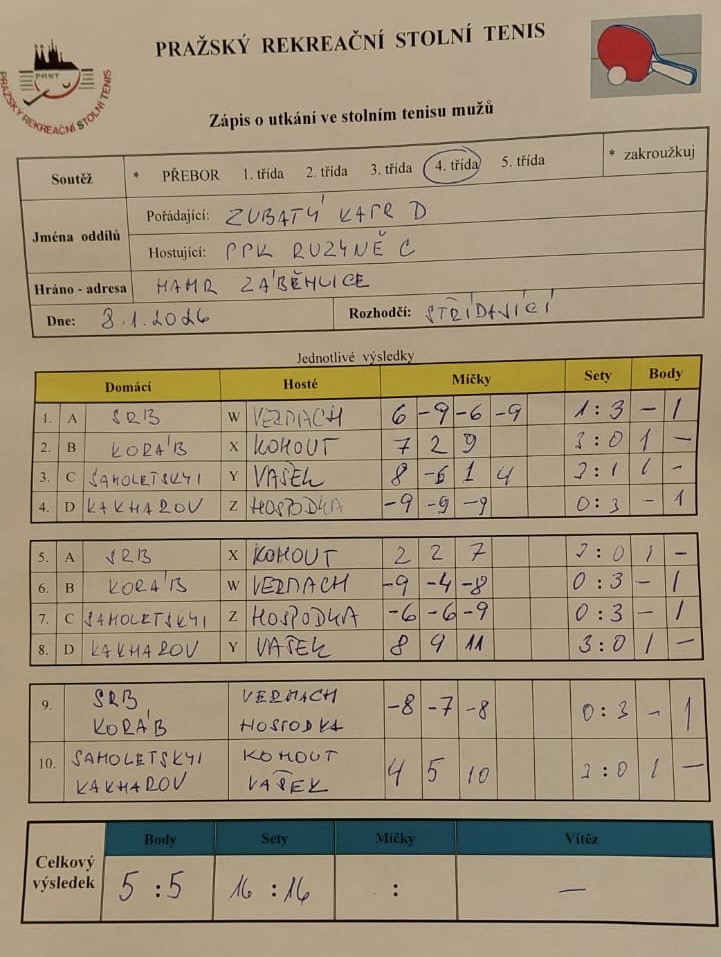 PRAŽSKÝ REKREAČNÍ STOLNÍ TENIS
PRST
PRAŽSKÝ REKREAČNÍ STOLNÍ TENIS
Zápis o utkání ve stolním tenisu mužů
Soutěž * PŘEBOR 1. třída 2. třída 3. třída 4. třída 5. třída * zakroužkuj
Jména oddílů
Pořádající: ZUBATÝ KAPR D
Hostující: PPK RUZYNĚ C
Hráno - adresa HAMR ZÁBĚHLICE
Dne: 8.1.2026 Rozhodčí: STŘÍDAJÍCÍ
Jednotlivé výsledky
Domácí Hosté Míčky Sety Body
1. A SRB W VERMACH 6 -9 -6 -9 1:3 - 1
2. B KORÁB X KOHOUT 7 2 9 3:0 1 -
3. C SAMOLETSKYI Y VAŠEK 8 -6 1 4 3:1 1 -
4. D KAKHAROV Z HOSPODKA -9 -9 -9 0:3 - 1
5. A SRB X KOHOUT 2 2 7 3:0 1 -
6. B KORÁB W VERMACH -9 -4 -8 0:3 - 1
7. C SAMOLETSKYI Z HOSPODKA -6 -6 -9 0:3 - 1
8. D KAKHAROV Y VAŠEK 8 9 11 3:0 1 -
9. SRB VERMACH -8 -7 -8 0:3 - 1
KORÁB HOSPODKA
10. SAMOLETSKYI KOHOUT 4 5 10 3:0 1 -
KAKHAROV VAŠEK
Body Sety Míčky Vítěz
Celkový výsledek 5:5 16:16 : —